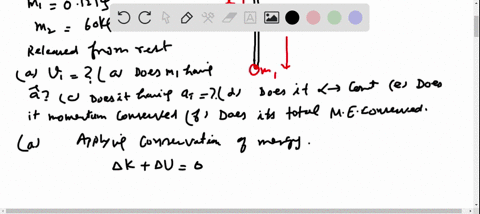 m₁ = 0.12kg
m₂ = 60kg
Released from rest
(a) Vi = ? (a) Does m₁ having
a⃗? (c) Does it having at = ? (d) Does it α → Const (e) Does
it momentum Conserved (f) Does its total M.E. Conserved.
m₁
(a) Applying Conservation of energy.
ΔK + ΔU = 0